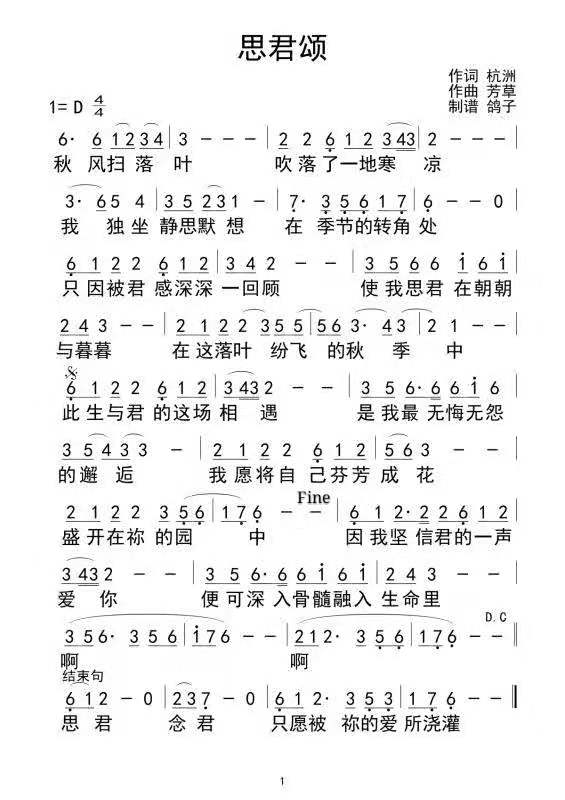 思君颂
作词 杭洲
作曲 芳草
1= D 4/4
制谱 鸽子
6· 6 1 2 3 4 | 3 — — — | 2 2 6 1 2 3 4 3 | 2 — — — |
秋 风扫 落 叶 吹 落 了一地寒 凉
3· 6 5 4 | 3 5 2 3 1 — | 7· 3 5 6 1 7 | 6 — — 0 |
我 独坐 静思默 想 在 季节的转角 处
6 1 2 2 6 1 2 | 3 4 2 — — | 3 5 6 6 i 6 i |
只 因被君 感深深 一回顾 使 我思君 在朝朝
2 4 3 — — | 2 1 2 2 3 5 5 | 5 6 3· 4 3 | 2 — — |
与暮暮 在 这落叶 纷飞 的秋 季 中
6 1 2 2 6 1 2 | 3 4 3 2 — — | 3 5 6· 6 6 i 6 |
此 生与君 的这场 相 遇 是 我最 无悔无怨
3 5 4 3 3 — | 2 1 2 2 6 1 2 | 5 6 3 — — |
的邂 逅 我 愿将自 己芬芳 成 花
Fine
2 1 2 2 3 5 6 | 1 7 6 — — | 6 1 2· 2 2 6 1 2 |
盛 开在祢 的园 中 因 我坚 信君的一声
3 4 3 2 — — | 3 5 6· 6 6 i 6 i | 2 4 3 — — |
爱 你 便 可深 入骨髓融入 生命里
D.C
3 5 6· 3 5 6 | i 7 6 — — | 2 1 2· 3 5 5 | 1 7 6 — — ‖
啊 啊
结束句
6 1 2 — 0 | 2 3 7 — 0 | 6 1 2· 3 5 3 | 1 7 6 — ‖
思 君 念 君 只愿被 祢的爱 所浇灌
1